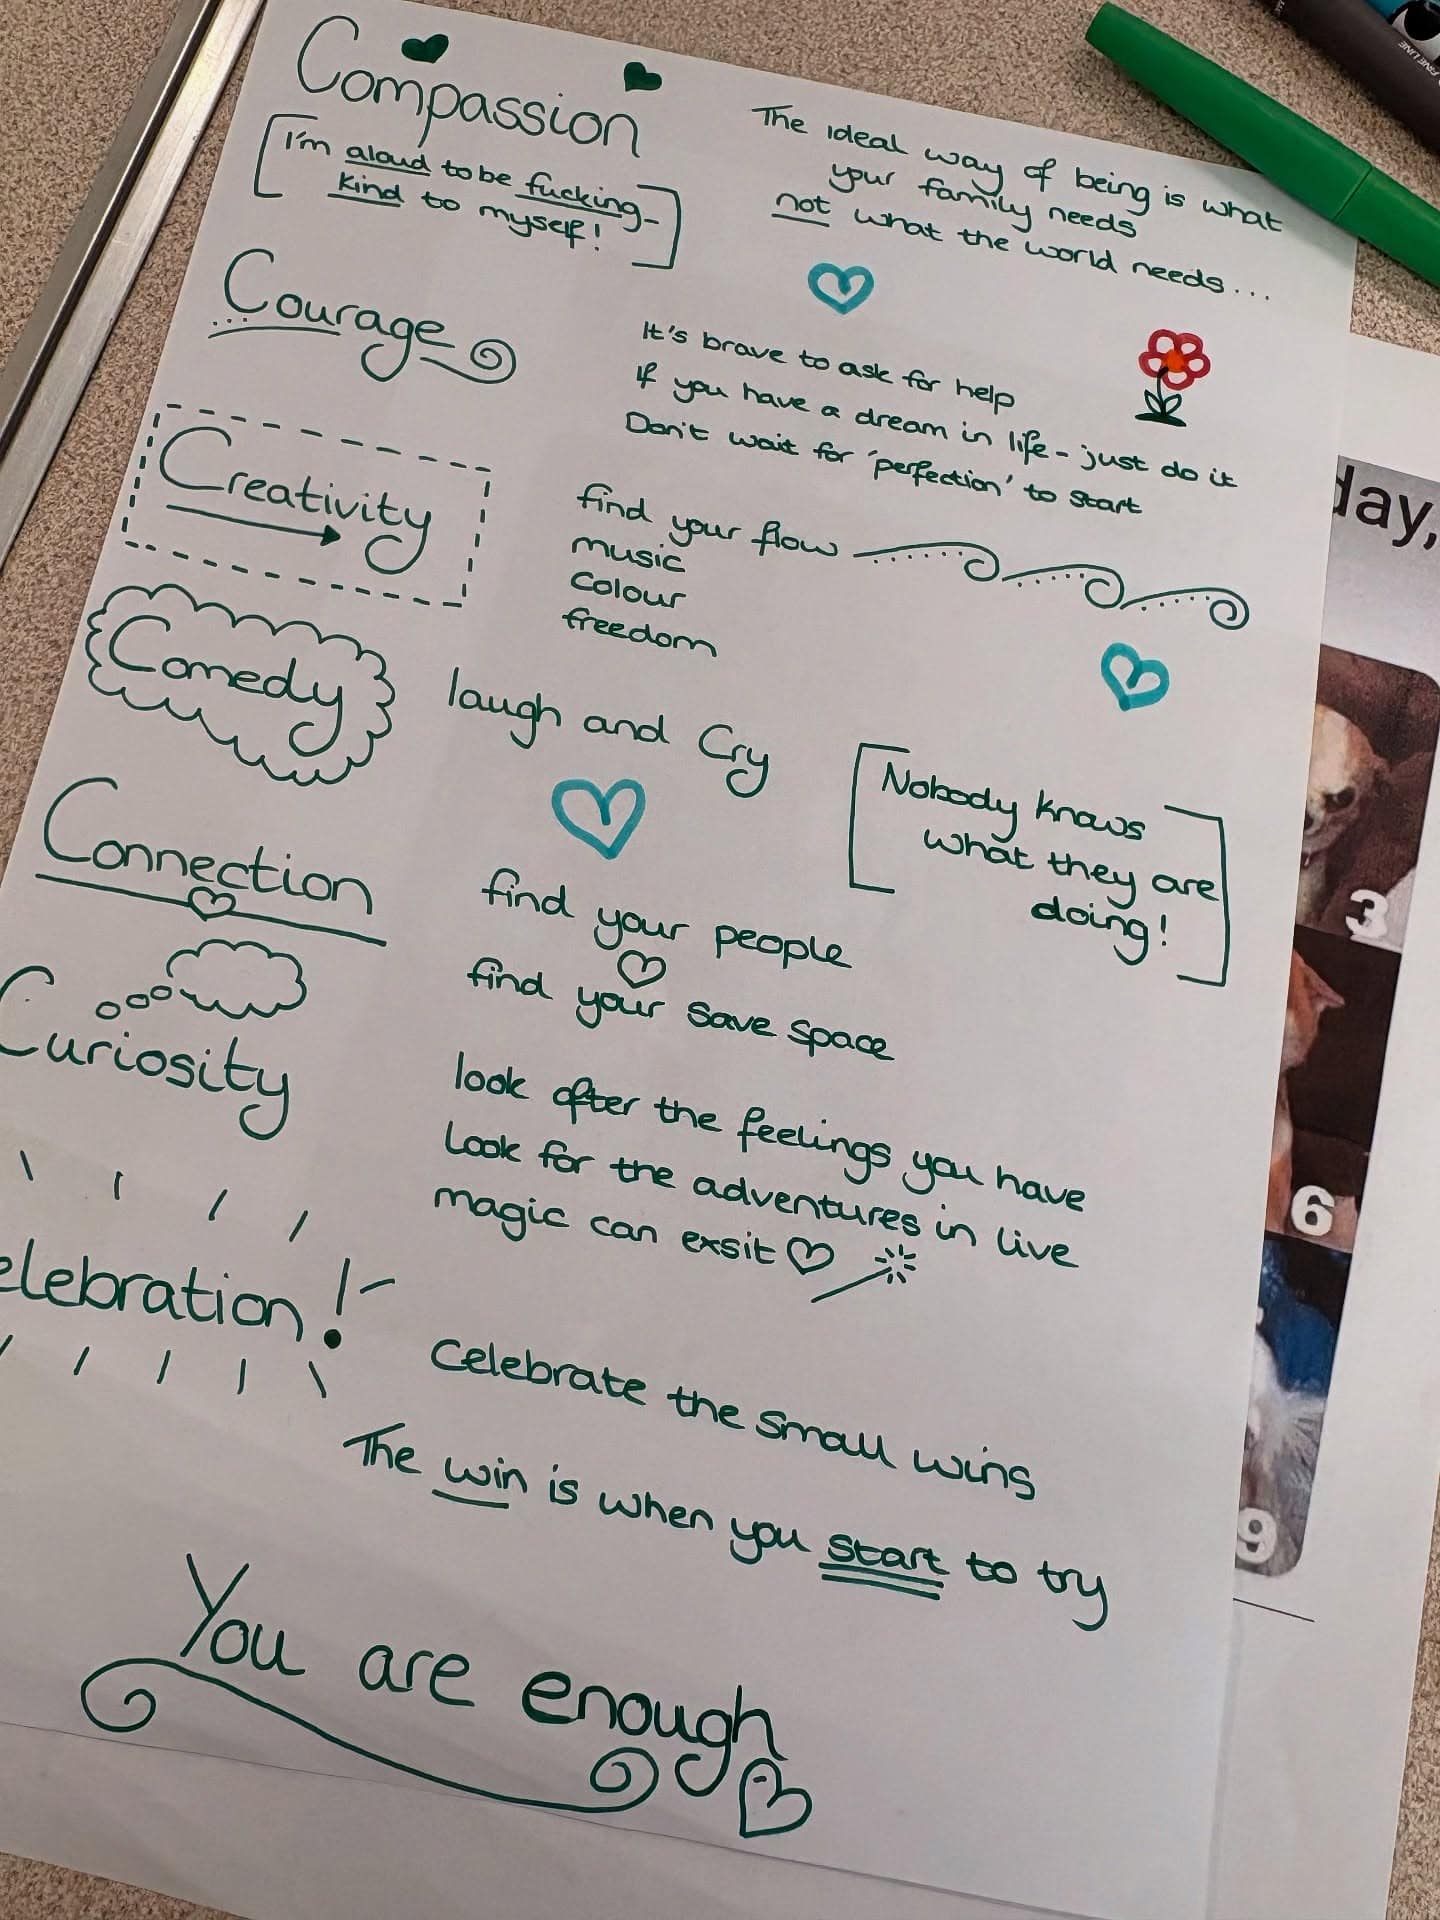 Compassion
I'm aloud to be fucking-
kind to myself!
The ideal way of being is what
your family needs
not what the world needs...
Courage
It's brave to ask for help
If you have a dream in life - just do it
Don't wait for 'perfection' to start
Creativity
find your flow
music
colour
freedom
Comedy
laugh and Cry
Nobody knows
what they are
doing!
Connection
find your people
find your save space
Curiosity
look after the feelings you have
Look for the adventures in live
magic can exsit
elebration!
Celebrate the small wins
The win is when you start to try
You are enough
day,
3
6
9